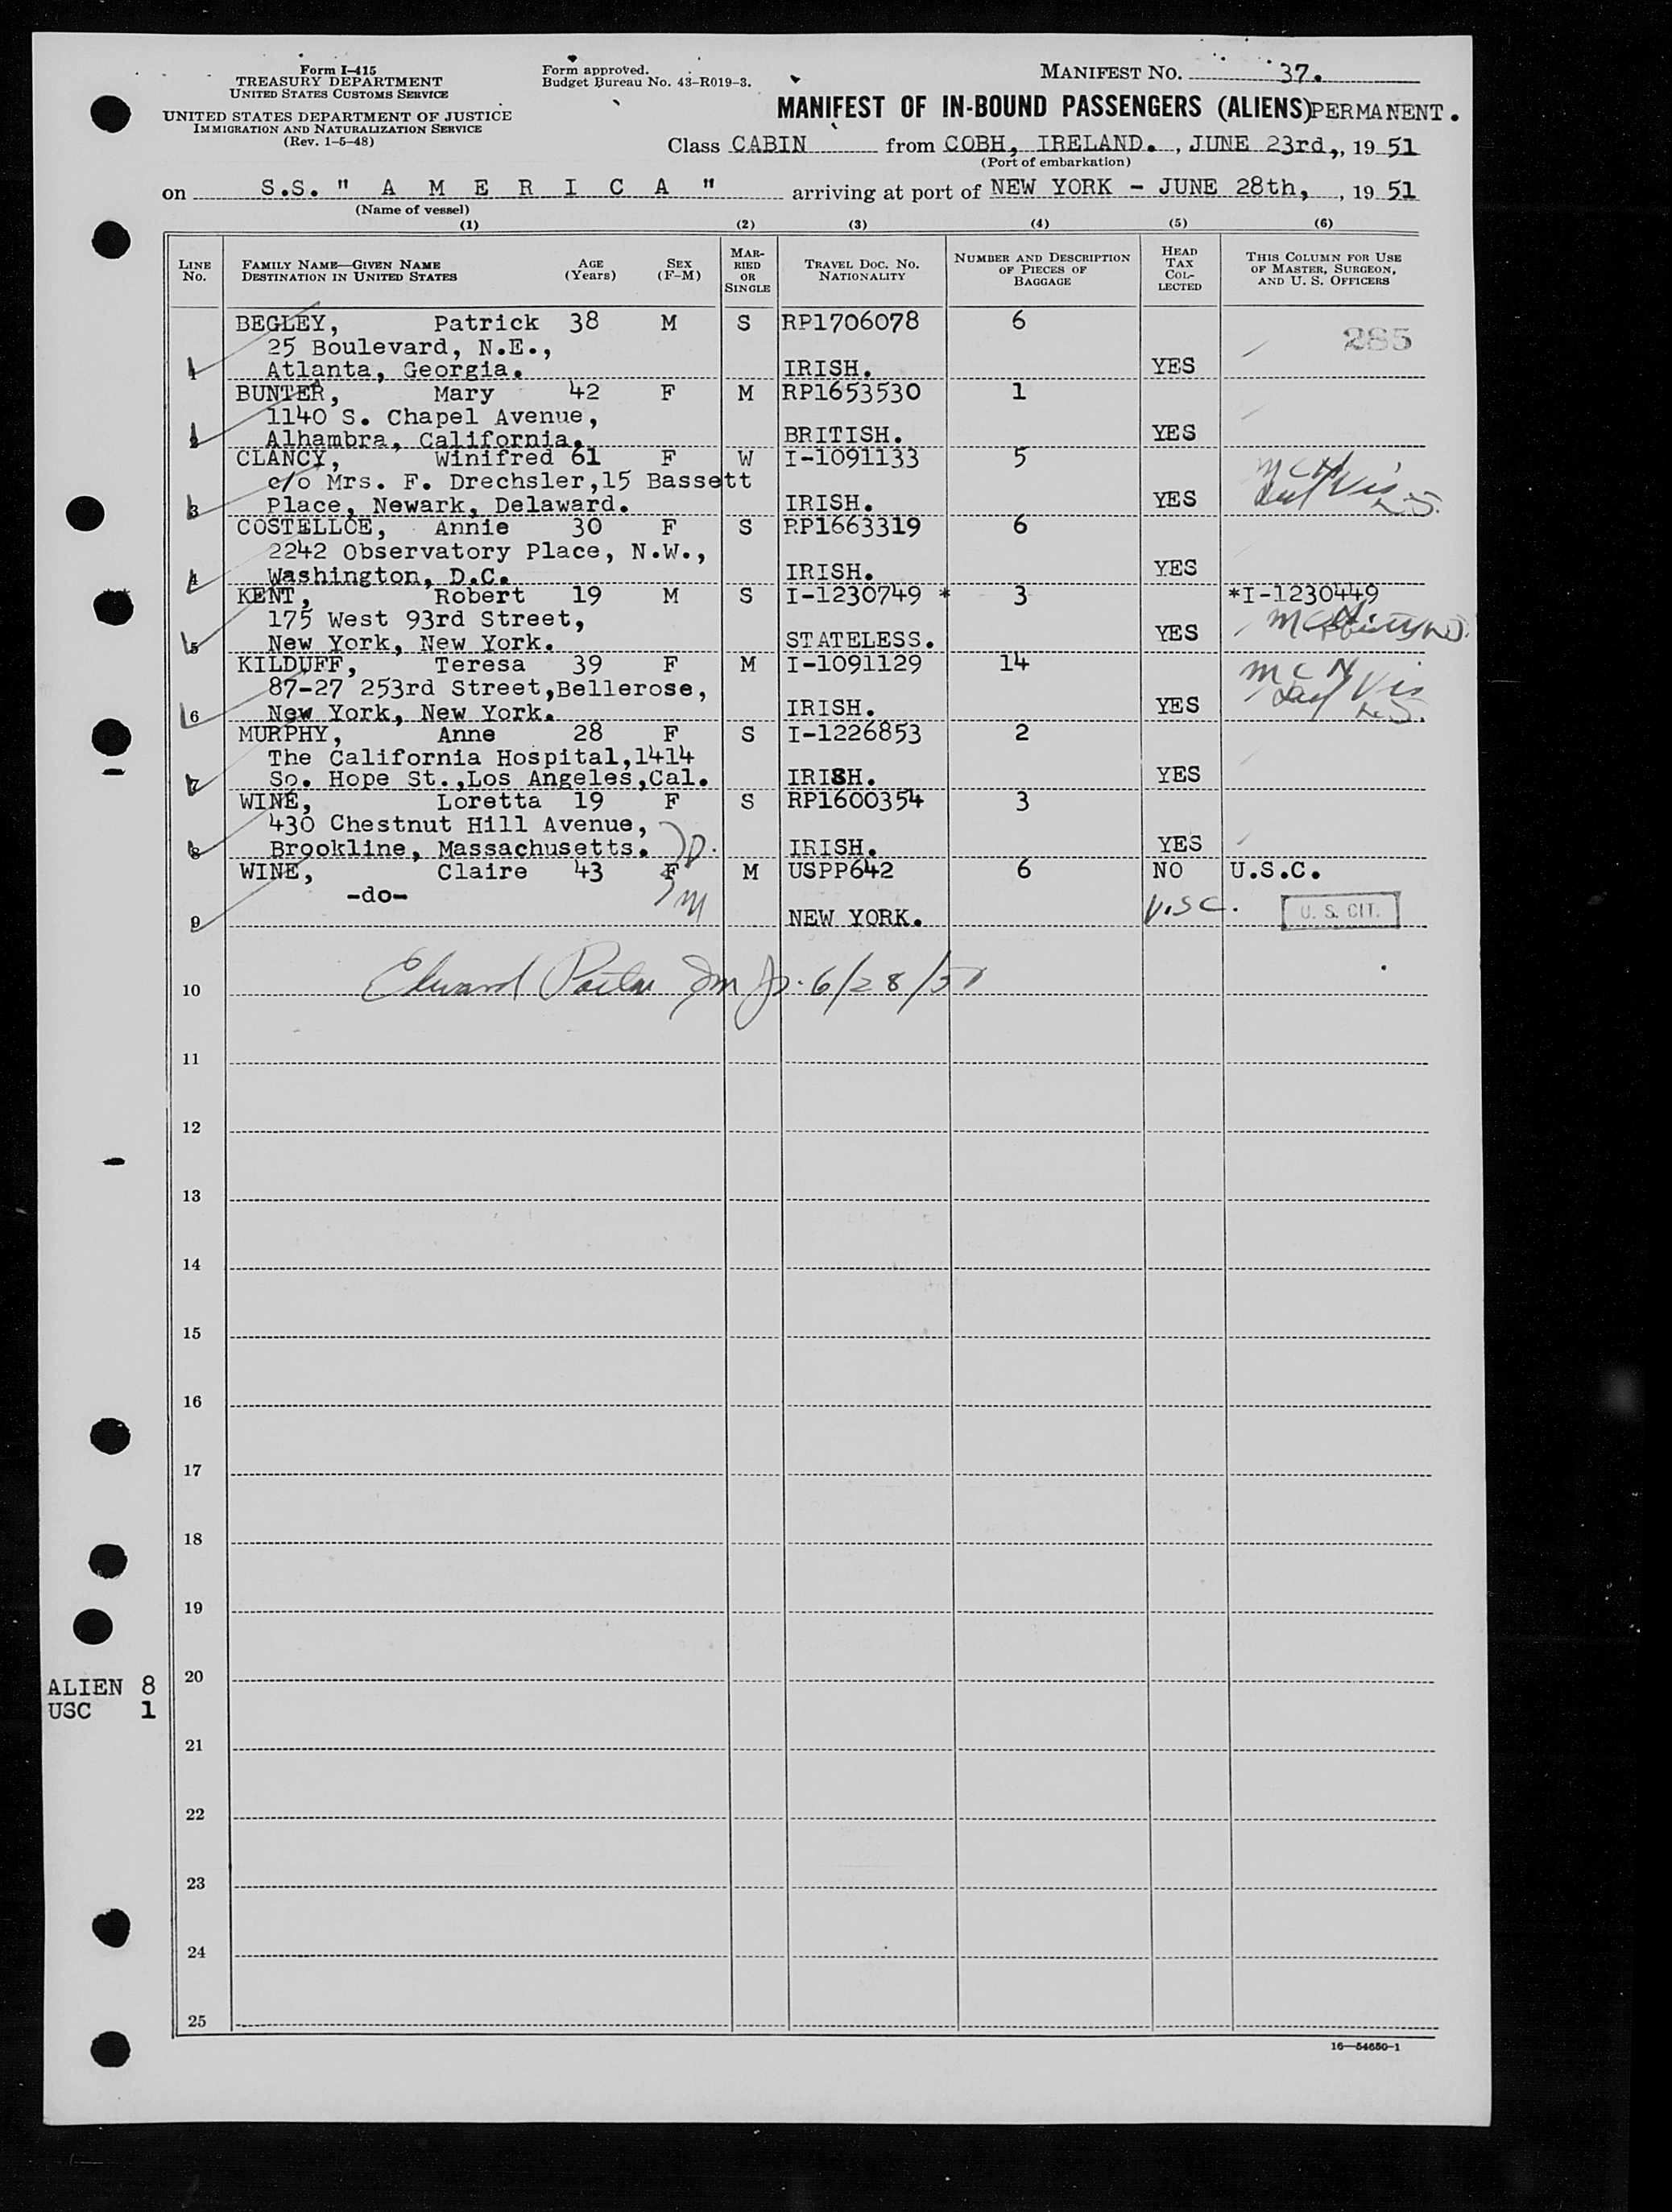 Form I-415
TREASURY DEPARTMENT
UNITED STATES CUSTOMS SERVICE
UNITED STATES DEPARTMENT OF JUSTICE
IMMIGRATION AND NATURALIZATION SERVICE
(Rev. 1-5-48)
Form approved.
Budget Bureau No. 43-R019-3.
MANIFEST NO. 37.
MANIFEST OF IN-BOUND PASSENGERS (ALIENS) PERMANENT.
Class CABIN from COBH, IRELAND. , JUNE 23rd,, 19 51
(Port of embarkation)
on S.S. " A M E R I C A " arriving at port of NEW YORK - JUNE 28th, , 19 51
(Name of vessel)
(1) (2) (3) (4) (5) (6)
LINE No. FAMILY NAME—GIVEN NAME DESTINATION IN UNITED STATES AGE (Years) SEX (F-M) MARRIED OR SINGLE TRAVEL DOC. NO. NATIONALITY NUMBER AND DESCRIPTION OF PIECES OF BAGGAGE HEAD TAX COLLECTED THIS COLUMN FOR USE OF MASTER, SURGEON, AND U. S. OFFICERS
BEGLEY, Patrick 38 M S RP1706078 6
25 Boulevard, N.E., 285
1 Atlanta, Georgia. IRISH. YES
BUNTER, Mary 42 F M RP1653530 1
1140 S. Chapel Avenue,
2 Alhambra, California. BRITISH. YES
CLANCY, Winifred 61 F W I-1091133 5
c/o Mrs. F. Drechsler,15 Bassett
3 Place, Newark, Delaward. IRISH. YES
COSTELLOE, Annie 30 F S RP1663319 6
2242 Observatory Place, N.W.,
4 Washington, D.C. IRISH. YES
KENT, Robert 19 M S I-1230749 * 3 *I-1230449
175 West 93rd Street,
5 New York, New York. STATELESS. YES
KILDUFF, Teresa 39 F M I-1091129 14
87-27 253rd Street,Bellerose,
6 New York, New York. IRISH. YES
MURPHY, Anne 28 F S I-1226853 2
The California Hospital,1414
7 So. Hope St.,Los Angeles,Cal. IRISH. YES
WINE, Loretta 19 F S RP1600354 3
430 Chestnut Hill Avenue,
8 Brookline, Massachusetts. IRISH. YES
WINE, Claire 43 F M USPP642 6 NO U.S.C.
-do- U.S.C. U. S. CIT.
9 NEW YORK.
10 Edward 6/28/51
11
12
13
14
15
16
17
18
19
20
ALIEN 8
USC 1
21
22
23
24
25
16—54650-1